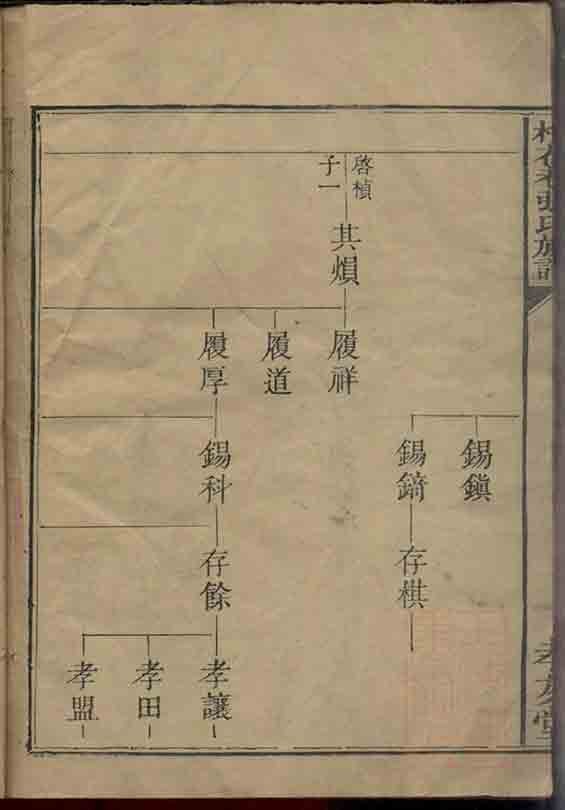 張氏族譜
啓楨
子一
其熉
履祥
履道
履厚
錫鎭
錫鏑
錫科
存棋
存餘
孝讓
孝田
孝盟
孝友堂